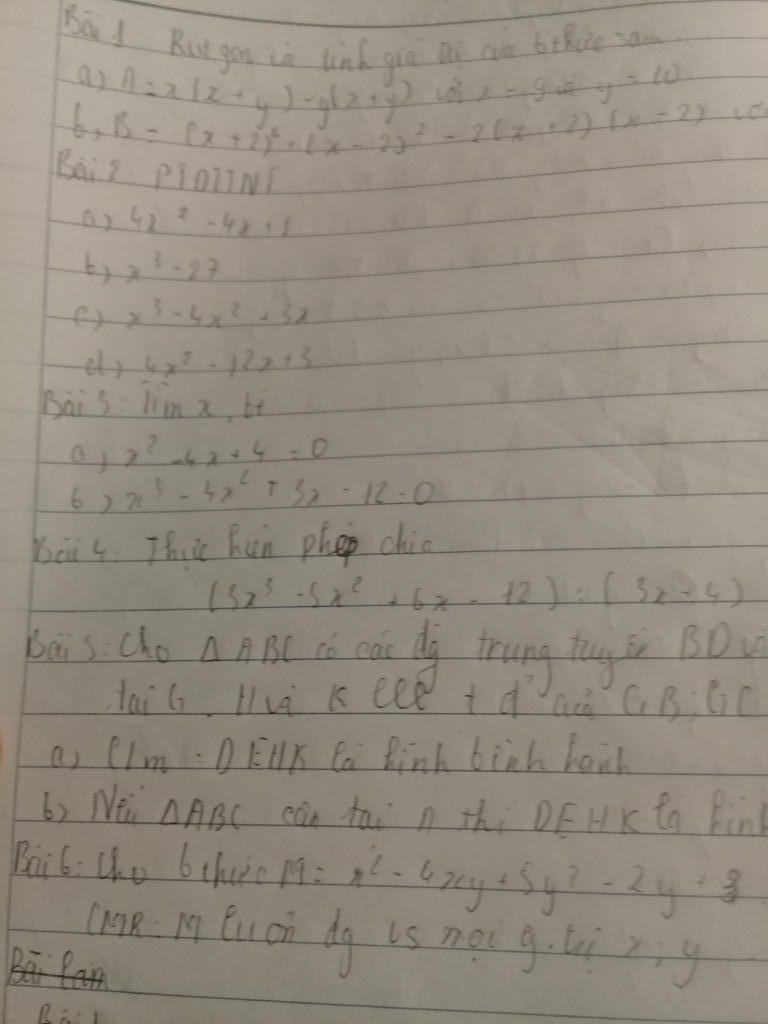 Bài 1 Rút gọn và tính giá trị của b thức sau
a) A = x(x + y) - y(x + y) với x = 9 và y = 10
b, B = (x + 2)² + (x - 2)² - 2(x + 2)(x - 2)
Bài 2: PTĐTTNT
a) 4x² - 4x + 1
b) x³ - 27
c) x³ - 4x² + 3x
d) 4x² - 12x + 3
Bài 3: Tìm x, bt
a) x² - 4x + 4 = 0
b) x³ - 4x² + 3x - 12 = 0
Bài 4: Thực hiện phép chia
(3x³ - 5x² + 6x - 12) : (3x - 4)
Bài 5: Cho Δ ABC có các đg trung tuyến BD và
tại G. H và K t đ' của GB; GC
a) C/m: DEHK là hình bình hành
b) Nếu ΔABC cân tại A thì DEHK là hình
Bài 6: Cho b thức M = x² - 4xy + 5y² - 2y + 3
CMR: M luôn dg vs mọi g.trị x; y
Bài làm
Bài 1